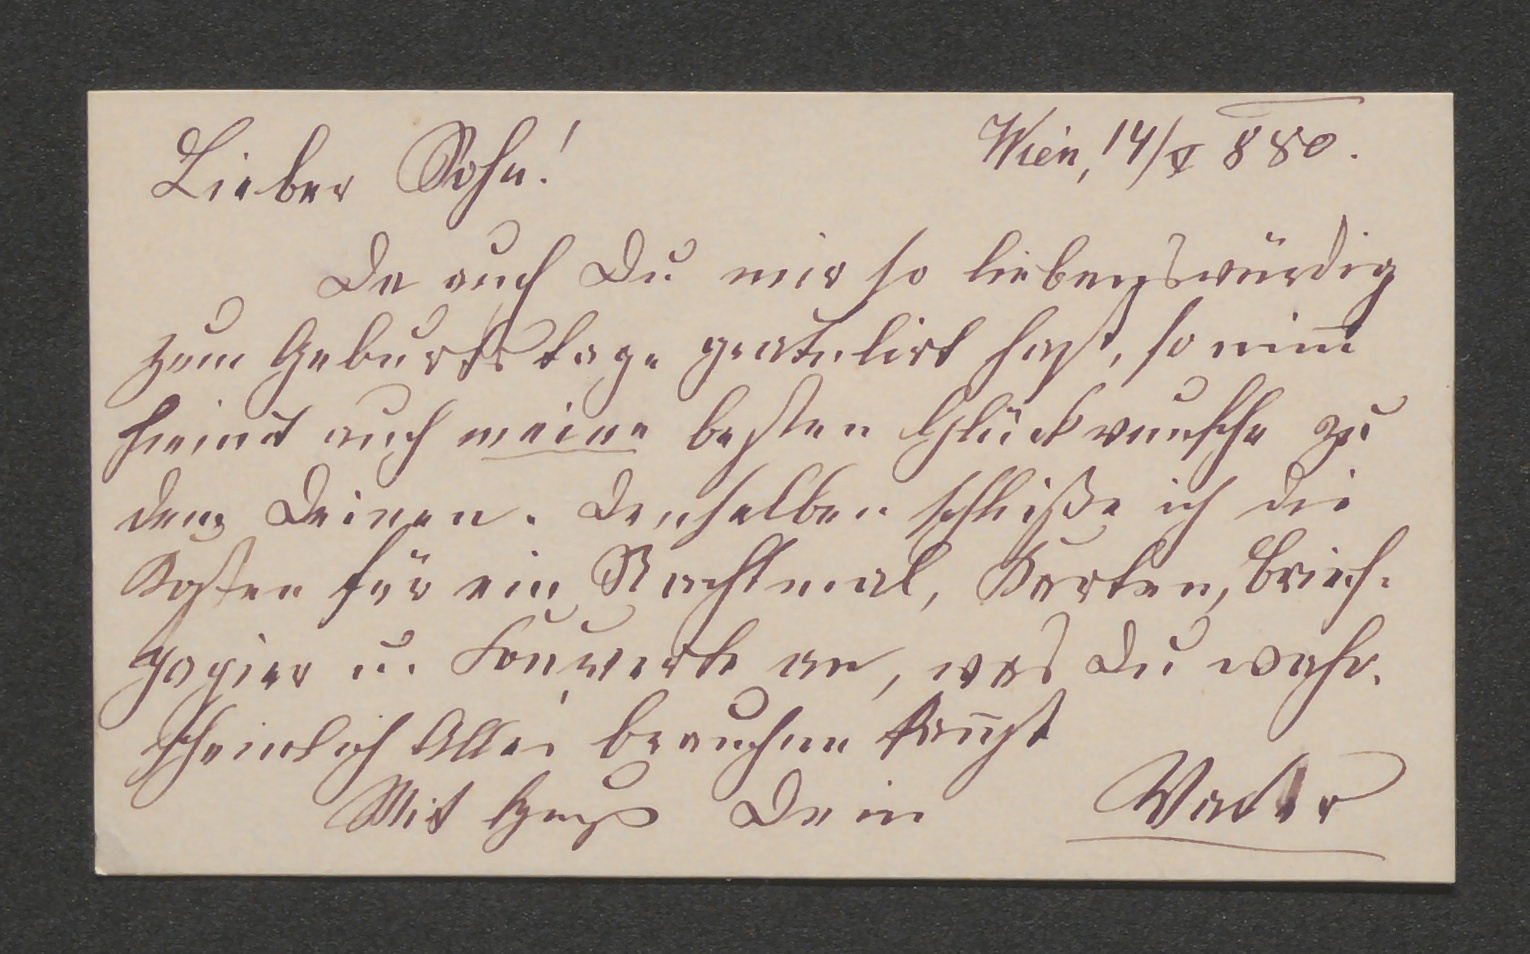 Wien, 14/V 880.
Lieber Sohn!
Da auch Du mir so liebenswürdig
zum Geburtstage gratulirt hast, so nim̅
heimit auch meine besten Glückwunsche zu
dem Deinen. Denselben schließe ich die
Kosten für ein Nachtmal, Karten, Brief-
papier u. Couverte an, was Du wahr-
scheinlich Alles brauchen kan̅st
Mit Gruß Dein Vater